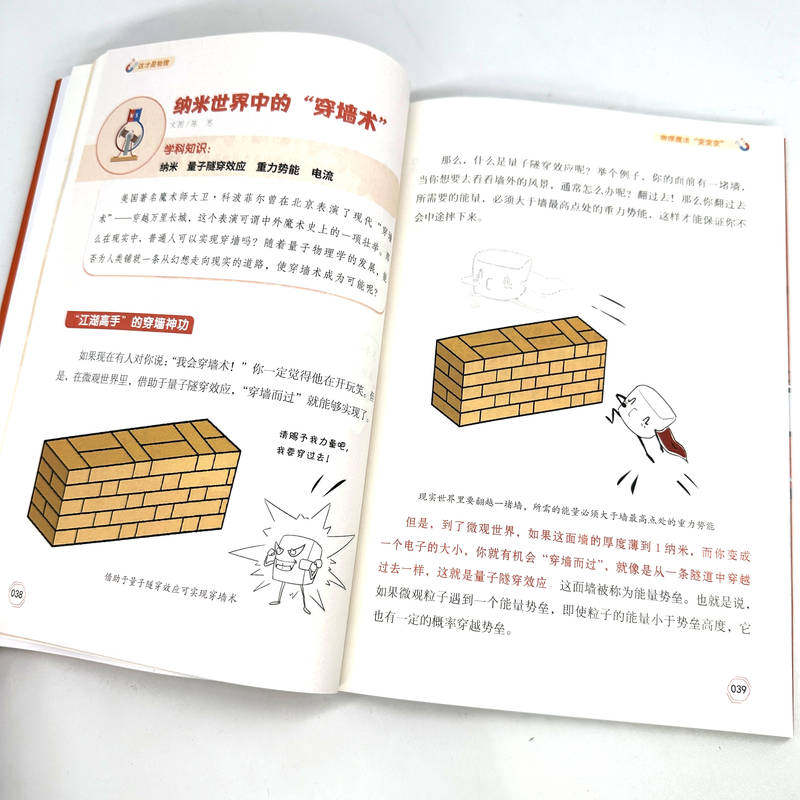 这才是物理
纳米世界中的“穿墙术”
文图/陈 思
学科知识:
纳米 量子隧穿效应 重力势能 电流
美国著名魔术师大卫·科波菲尔曾在北京表演了现代“穿墙
术”——穿越万里长城,这个表演可谓中外魔术史上的一项壮举。那
么在现实中,普通人可以实现穿墙吗?随着量子物理学的发展,能
否为人类铺就一条从幻想走向现实的道路,使穿墙术成为可能呢?
“江湖高手”的穿墙神功
如果现在有人对你说:“我会穿墙术!”你一定觉得他在开玩笑。但
是,在微观世界里,借助于量子隧穿效应,“穿墙而过”就能够实现了。
请赐予我力量吧,
我要穿过去!
借助于量子隧穿效应可实现穿墙术
038
物理魔法“变变变”
那么,什么是量子隧穿效应呢?举个例子,你的面前有一堵墙,
当你想要去看看墙外的风景,通常怎么办呢?翻过去!那么你翻过去
所需要的能量,必须大于墙最高点处的重力势能,这样才能保证你不
会中途摔下来。
现实世界里要翻越一堵墙,所需的能量必须大于墙最高点处的重力势能
但是,到了微观世界,如果这面墙的厚度薄到1纳米,而你变成
一个电子的大小,你就有机会“穿墙而过”,就像是从一条隧道中穿越
过去一样,这就是量子隧穿效应。这面墙被称为能量势垒。也就是说,
如果微观粒子遇到一个能量势垒,即使粒子的能量小于势垒高度,它
也有一定的概率穿越势垒。
039